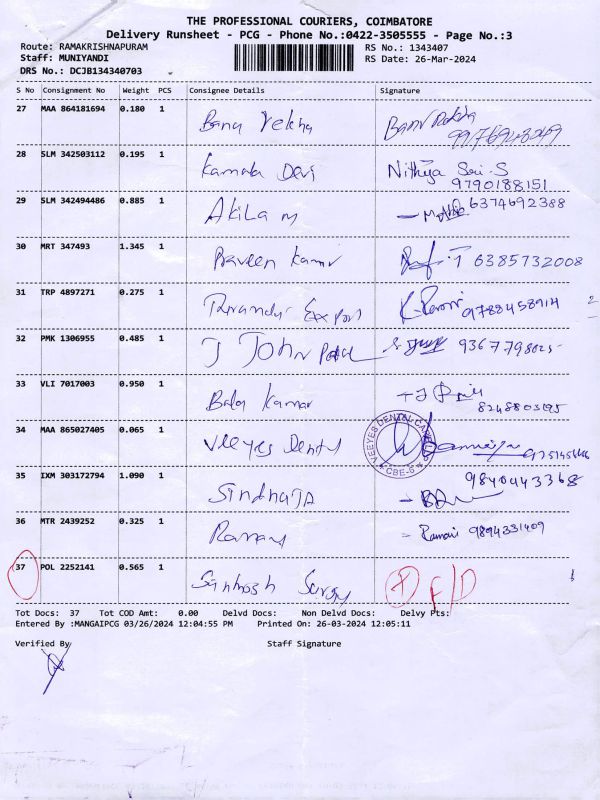 THE PROFESSIONAL COURIERS, COIMBATORE
Delivery Runsheet - PCG - Phone No.:0422-3505555 - Page No.:3
Route: RAMAKRISHNAPURAM RS No.: 1343407
Staff: MUNIYANDI RS Date: 26-Mar-2024
DRS No.: DCJB134340703
S No Consignment No Weight PCS Consignee Details Signature
27 MAA 864181694 0.180 1 Banu Rekha
28 SLM 342503112 0.195 1 Kamala Devi Nithya Sri.S
9790188151
29 SLM 342494486 0.885 1 Akila m 6374692388
30 MRT 347493 1.345 1 Praveen Kumar 6385732008
31 TRP 4897271 0.275 1 Export 9788458914
32 PMK 1306955 0.485 1 J John
33 VLI 7017003 0.950 1 Bala Kumar
8248803195
34 MAA 865027405 0.065 1 Veeyes Dental VEEYES DENTAL CBE-6
35 IXM 303172794 1.090 1 9840443368
36 MTR 2439252 0.325 1 Ramani 9894331409
37 POL 2252141 0.565 1 Santhosh F/D
Tot Docs: 37 Tot COD Amt: 0.00 Delvd Docs: Non Delvd Docs: Delvy Pts:
Entered By :MANGAIPCG 03/26/2024 12:04:55 PM Printed On: 26-03-2024 12:05:11
Verified By Staff Signature